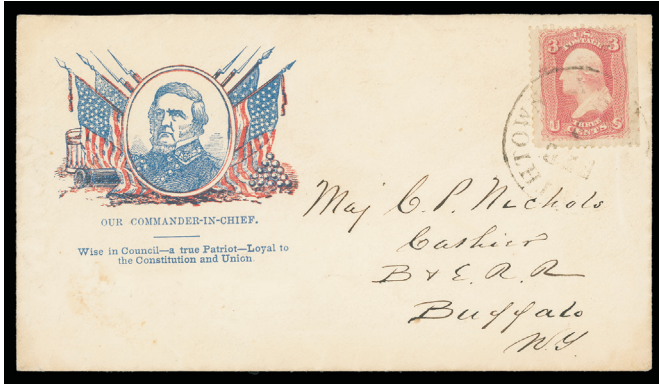 OUR COMMANDER-IN-CHIEF.
Wise in Council—a true Patriot—Loyal to
the Constitution and Union.
3 U.S. POSTAGE 3
U THREE CENTS C
Maj C. P. Nichols
Cashier
B & E. R. R
Buffalo
N.Y.